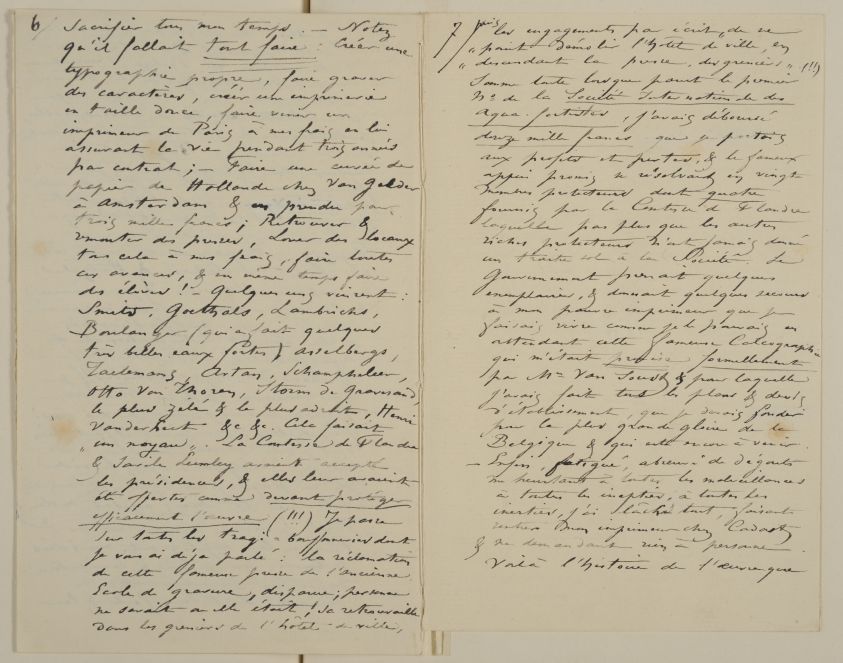 6
Sacrifier tous mon temps. — Notez
qu'il fallait tout faire : Créer une
typographie propre, faire graver
des caractères, créer une imprimerie
en taille douce, faire venir un
imprimeur de Paris à mes frais en lui
assurant la vie pendant trois années
par contrat ; — Faire une cuvée de
papier de Hollande chez Van Gelder
à Amsterdam & en prendre pour
trois mille francs ; Retrouver &
remonter des presses, Louer des locaux
tous cela à mes frais, faire toutes
ces avances, & en même temps faire
des élèves ! — Quelques uns vinrent :
Smits, Goethals, Lambrichs,
Boulanger (qui a fait quelques
très belles eaux fortes) Asselbergs,
Taelemans, Artan, Schampheleer,
Otto Von Thoren, Storm de Gravesand,
le plus zélé & le plus adroit, Henri
Vanderhecht &c &c. Cela faisait
"un noyau". La Comtesse de Flandre
& avaient accepté
les présidences, & elles leur avaient
été offertes comme devant protéger
efficacement l'œuvre (!!!) Je passe
sur toutes les tragi-bouffonneries dont
je vous ai déja parlé : la réclamation
de cette fameuse presse de l'ancienne
Ecole de gravure, disparue ; personne
ne savait où elle était ! Se retrouvaille
dans les greniers de l'hôtel-de-ville,
7 puis les engagements par écrit, "de ne
"point démolir l'hôtel de ville, en
"descendant la presse, des greniers" (!!!)
Somme toute lorsque parut le premier
No de la Société Internationale des
Aqua-fortistes, j'avais déboursé
douze mille francs que je portais
aux profits et pertes, & le fameux
appui promis se résolvait en vingt
membres protecteurs dont quatre
fournis par la Comtesse de Flandre
laquelle pas plus que les autres
riches protecteurs n'ont jamais donné
un traitre sol à la Société. Le
Gouvernement prenait quelques
exemplaires, & donnait quelques secours
à mon pauvre imprimeur que je
faisais vivre comme je le pouvais en
attendant cette fameuse Calcographie
qui m'était promise formellement
par Mr Van Soust & pour laquelle
j'avais fait tous les plans & devis
d'établissement, que je devais fonder
pour la plus grande gloire de la
Belgique & qui est encore à venir.
— Enfin, fatigué, abreuvé de dégouts
me heurtant à toutes les malveillances
à toutes les inepties, à toutes les
inerties, j'ai lâché tout, faisant
entrer mon imprimeur chez Cadart
& ne demandant rien à personne.
Voilà l'histoire de l'œuvre que